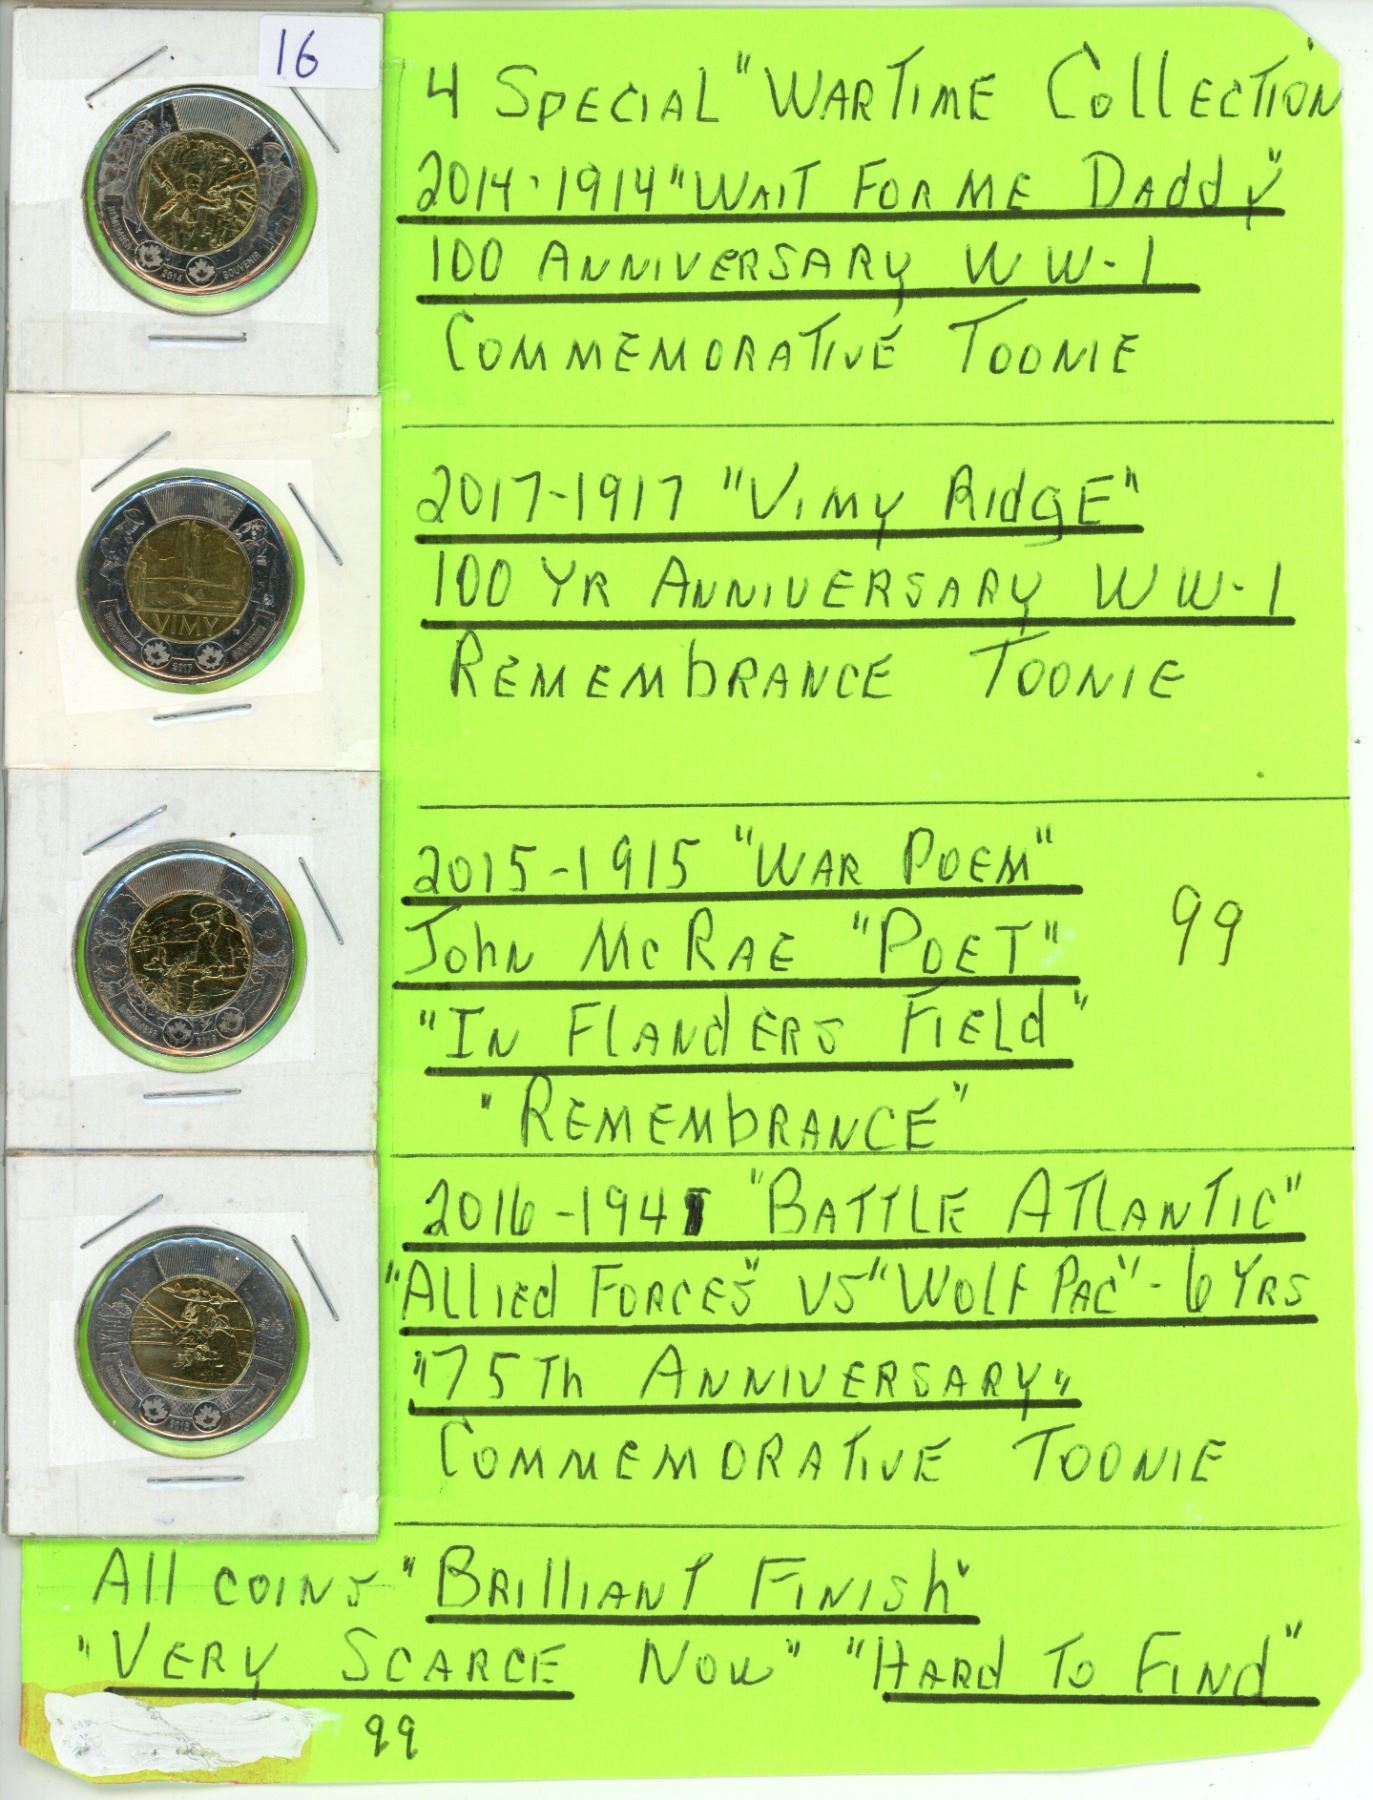 16
4 SPECIAL "WARTIME COllECTION
2014-1914 "WAIT FOR ME DAddy"
100 ANNIVERSARY WW-1
COMMEMORATIVE TOONIE
2014
SOUVENIR
2017-1917 "VIMY RIdgE"
100 YR ANNIVERSARY WW-1
REMEMbRANCE TOONIE
VIMY
2017
2015-1915 "WAR POEM"
JOhN McRAE "POET" 99
"IN FlANdERS FIELd"
"REMEMbRANCE"
2016-1941 "BATTLE ATLANTIC"
"AllIEd FORCES" VS "WOLF PAC" - 6 YRS
"75Th ANNIVERSARY"
COMMEMORATIVE TOONIE
All COINS "BRIllIANT FINISh"
"VERY SCARCE NOW" "HARd TO FINd"
99